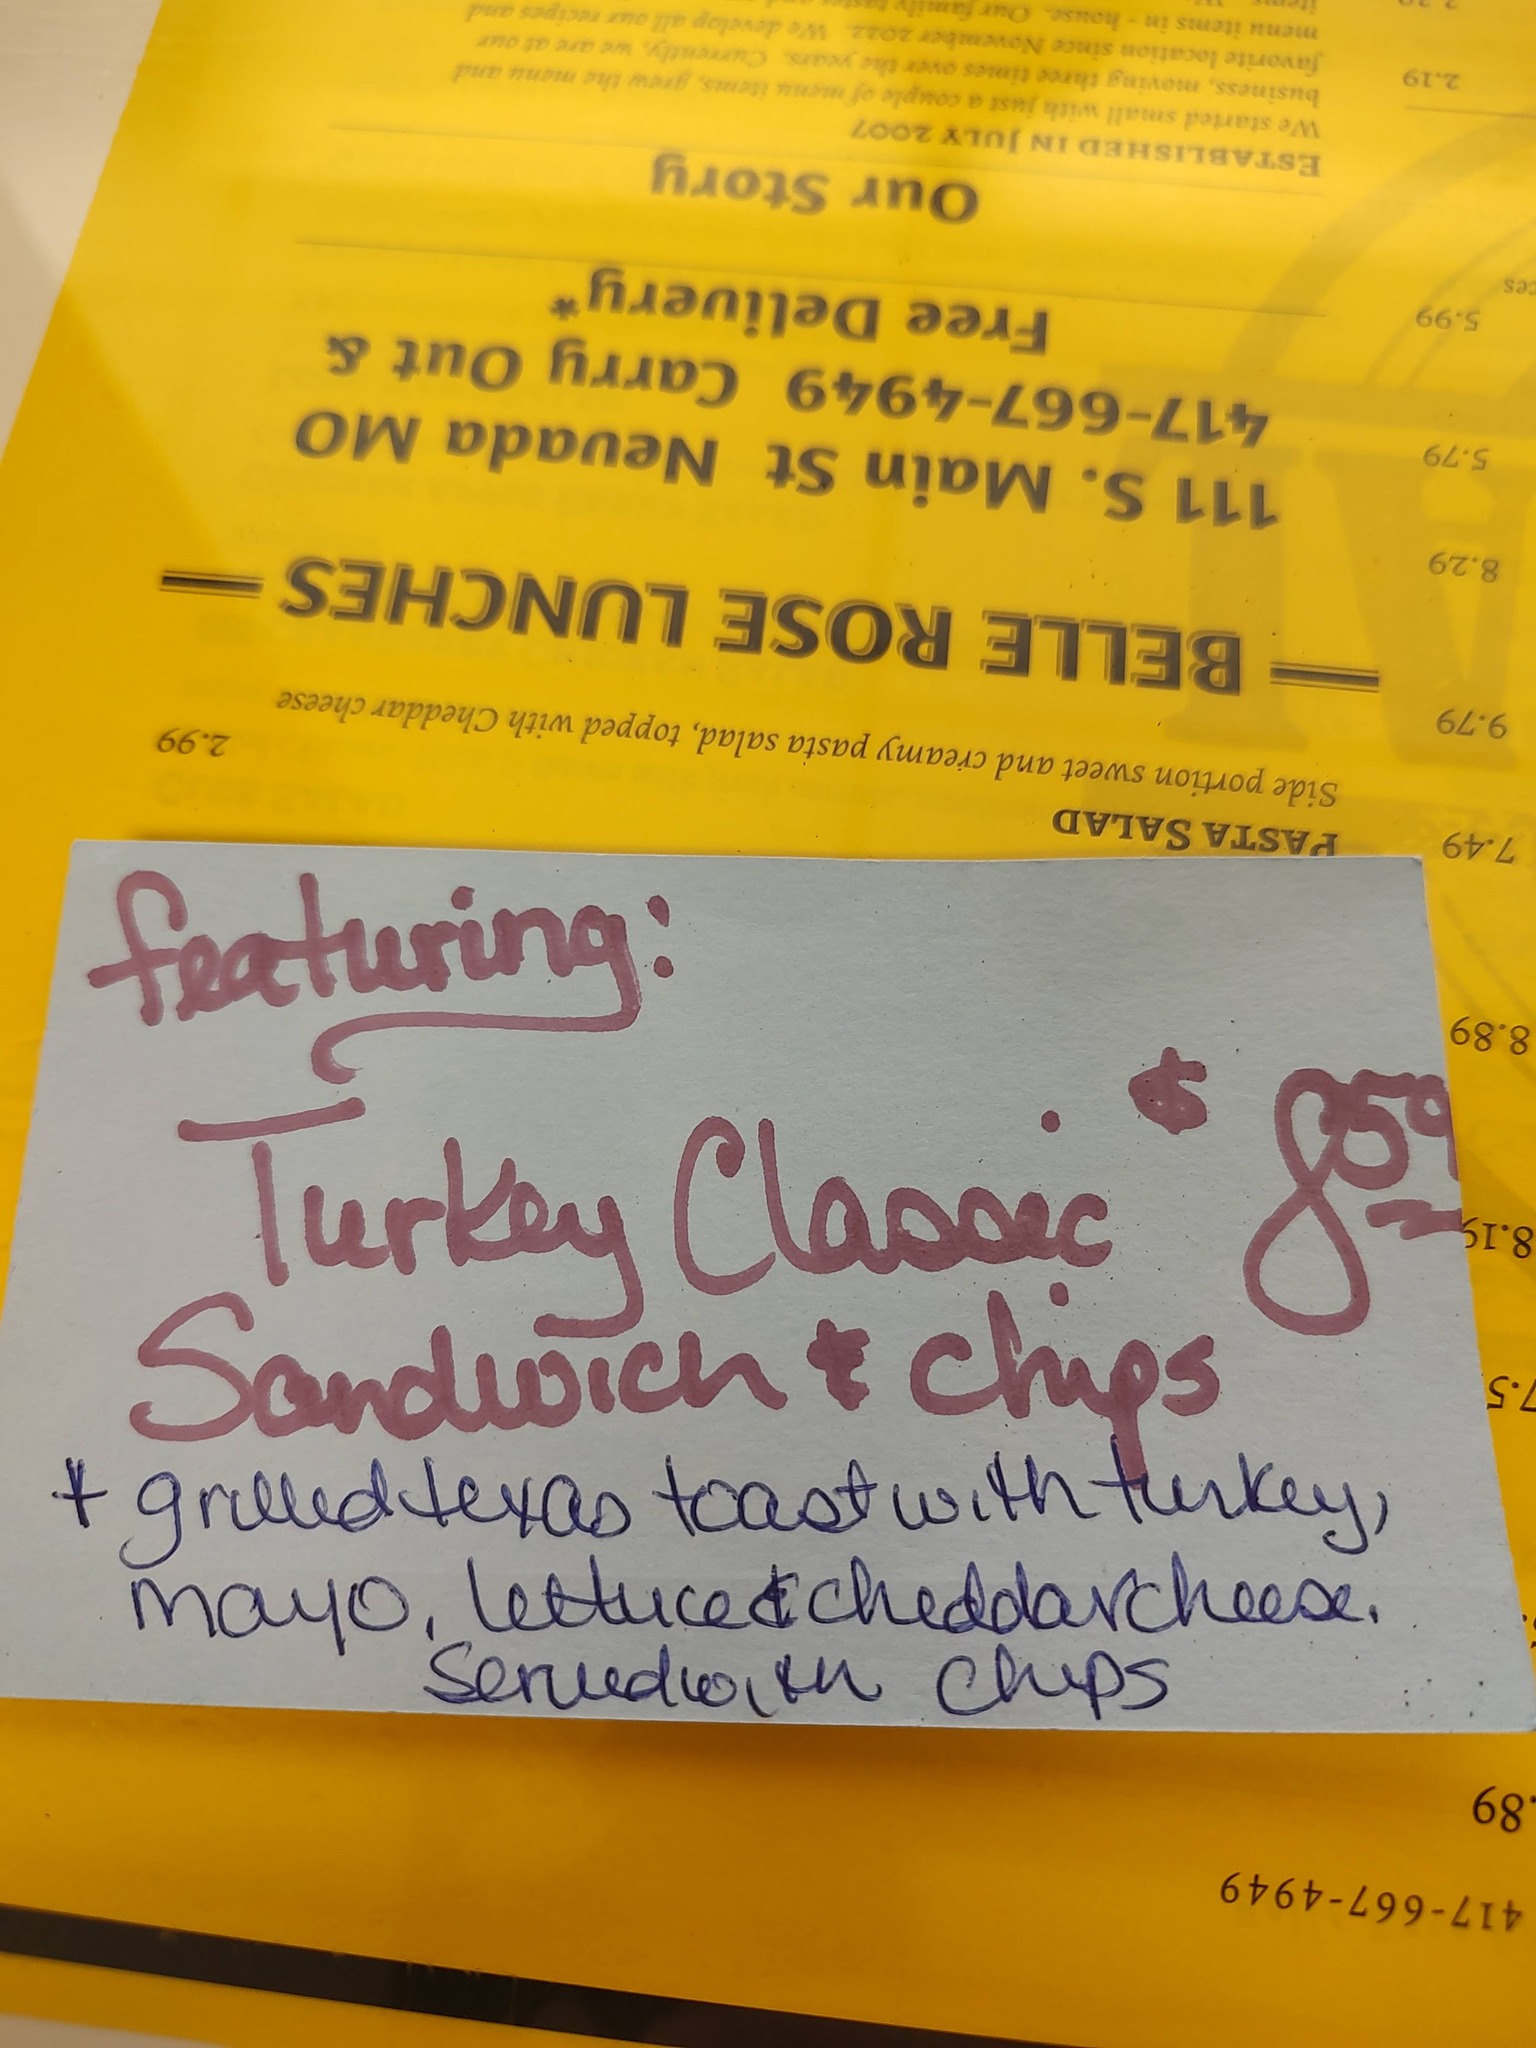 featuring:
Turkey Classic $8.59
Sandwich & chips
* grilled texas toast with turkey,
mayo, lettuce & cheddar cheese.
Served with chips
PASTA SALAD
Side portion sweet and creamy pasta salad, topped with Cheddar cheese 2.99
BELLE ROSE LUNCHES
111 S. Main St Nevada MO
417-667-4949 Carry Out &
Free Delivery*
Our Story
ESTABLISHED IN JULY 2007
We started small with just a couple of menu items, grew the menu and
business, moving three times over the years. Currently, we are at our
favorite location since November 2022. We develop all our recipes and
menu items in - house. Our family tastes and
417-667-4949
.89
8.19
8.89
7.49
9.79
8.29
5.79
5.99
2.19